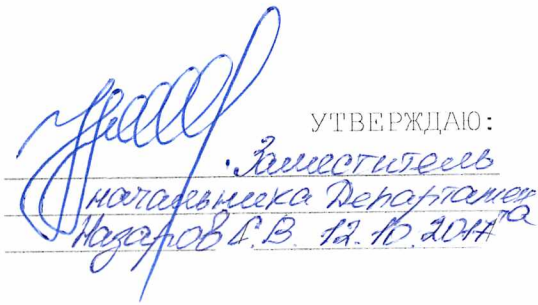 УТВЕРЖДАЮ:
Заместитель
начальника Департамента
Назаров С.В. 12.10.2017